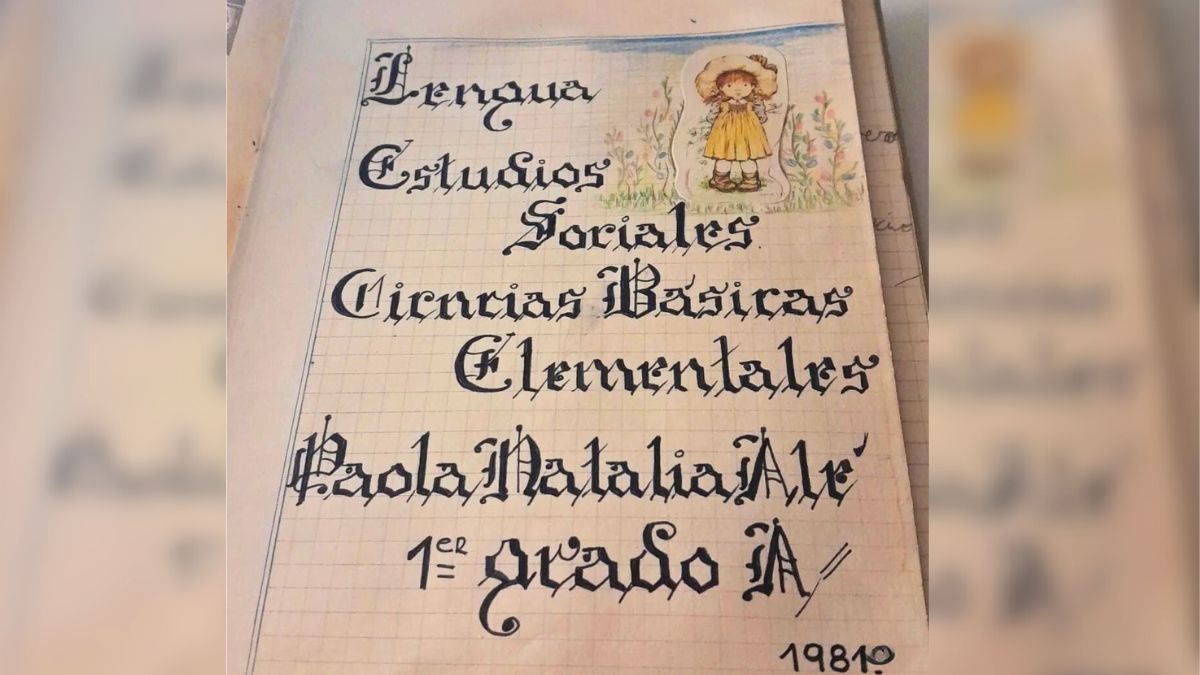 Lengua
Estudios
Sociales
Ciencias Básicas
Elementales
Paola Natalia Alé
1er grado A
1981